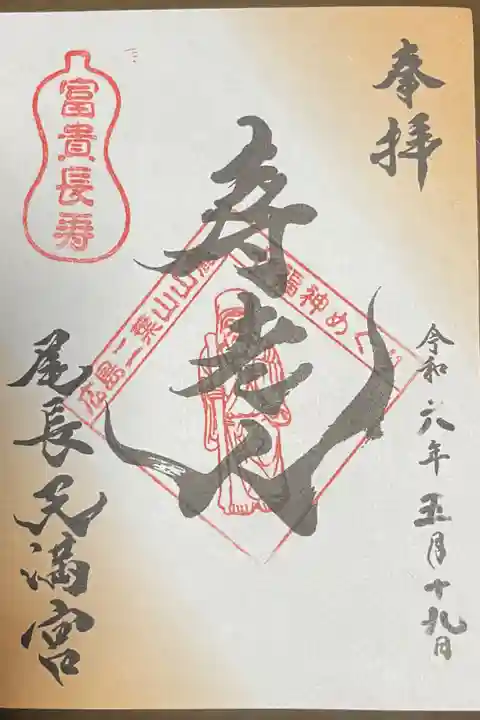 奉拝
令和六年五月十九日
寿老人
広島二葉山山麓
福神めぐ
富貴長寿
尾長天満宮